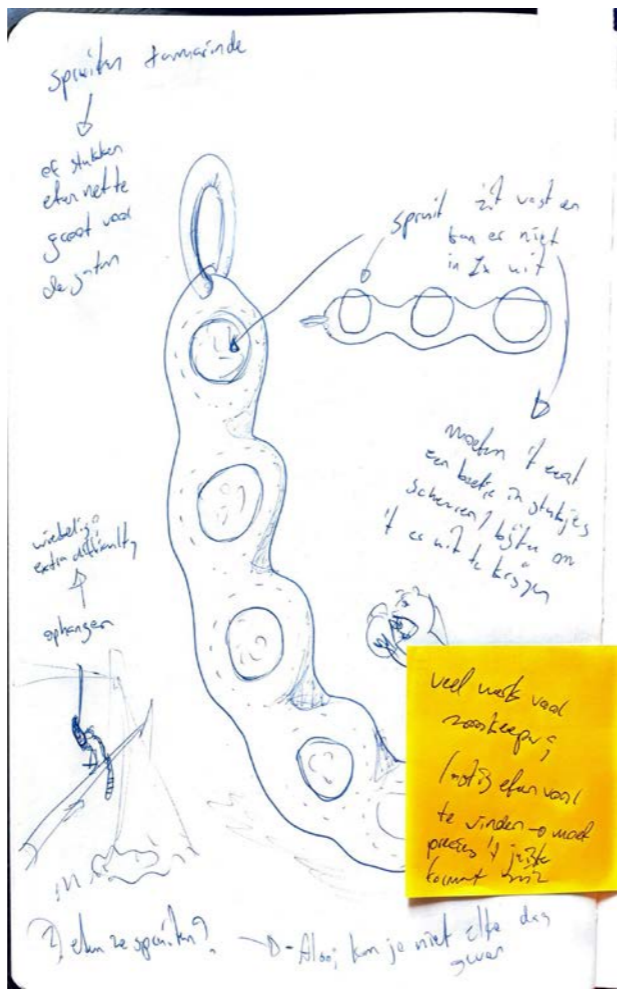 spruiten tamarinde
of stukken
eten net te
groot voor
de gaten
spruit zit vast en
kan er niet
in 1x uit
moeten 't eerst
een beetje in stukjes
scheuren / bijten om
't er uit te krijgen
wiebelig:
extra difficulty
ophangen
veel werk voor
zookeeper;
eten voor
te vinden → moet
precies 't juiste
formaat zijn
?) eten ze spruiten? → - Alooi kan je niet elke dag
geven